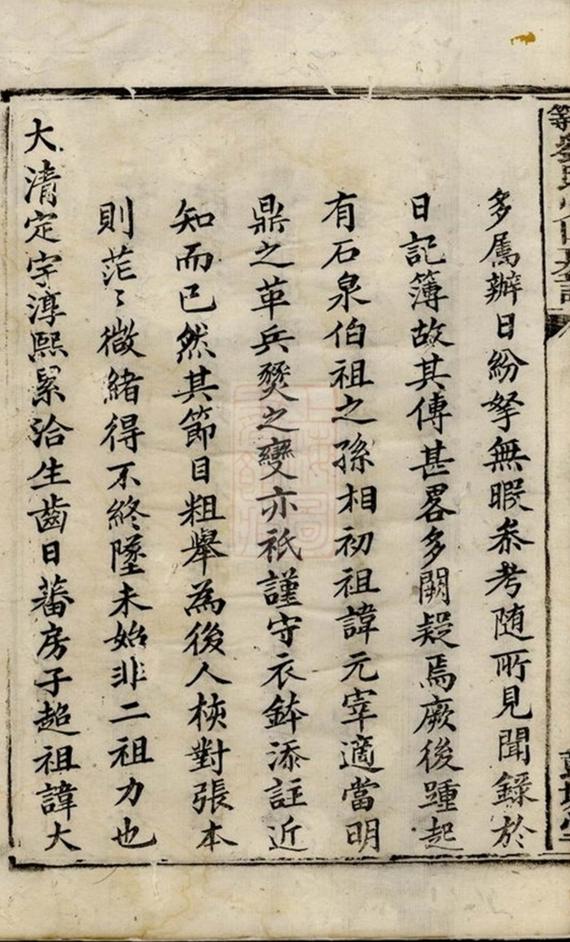 多屬辦日紛拏無暇叅考随所見聞錄於
日記簿故其傳甚畧多闕疑焉厥後踵起
有石泉伯祖之孫相初祖諱元宰適當明
鼎之革兵燹之變亦祇謹守衣鉢添註近
知而已然其節目粗舉為後人核對張本
則茫〻微緒得不終墜未始非二祖力也
大清定宇淳熙累洽生齒日蕃房子超祖諱大